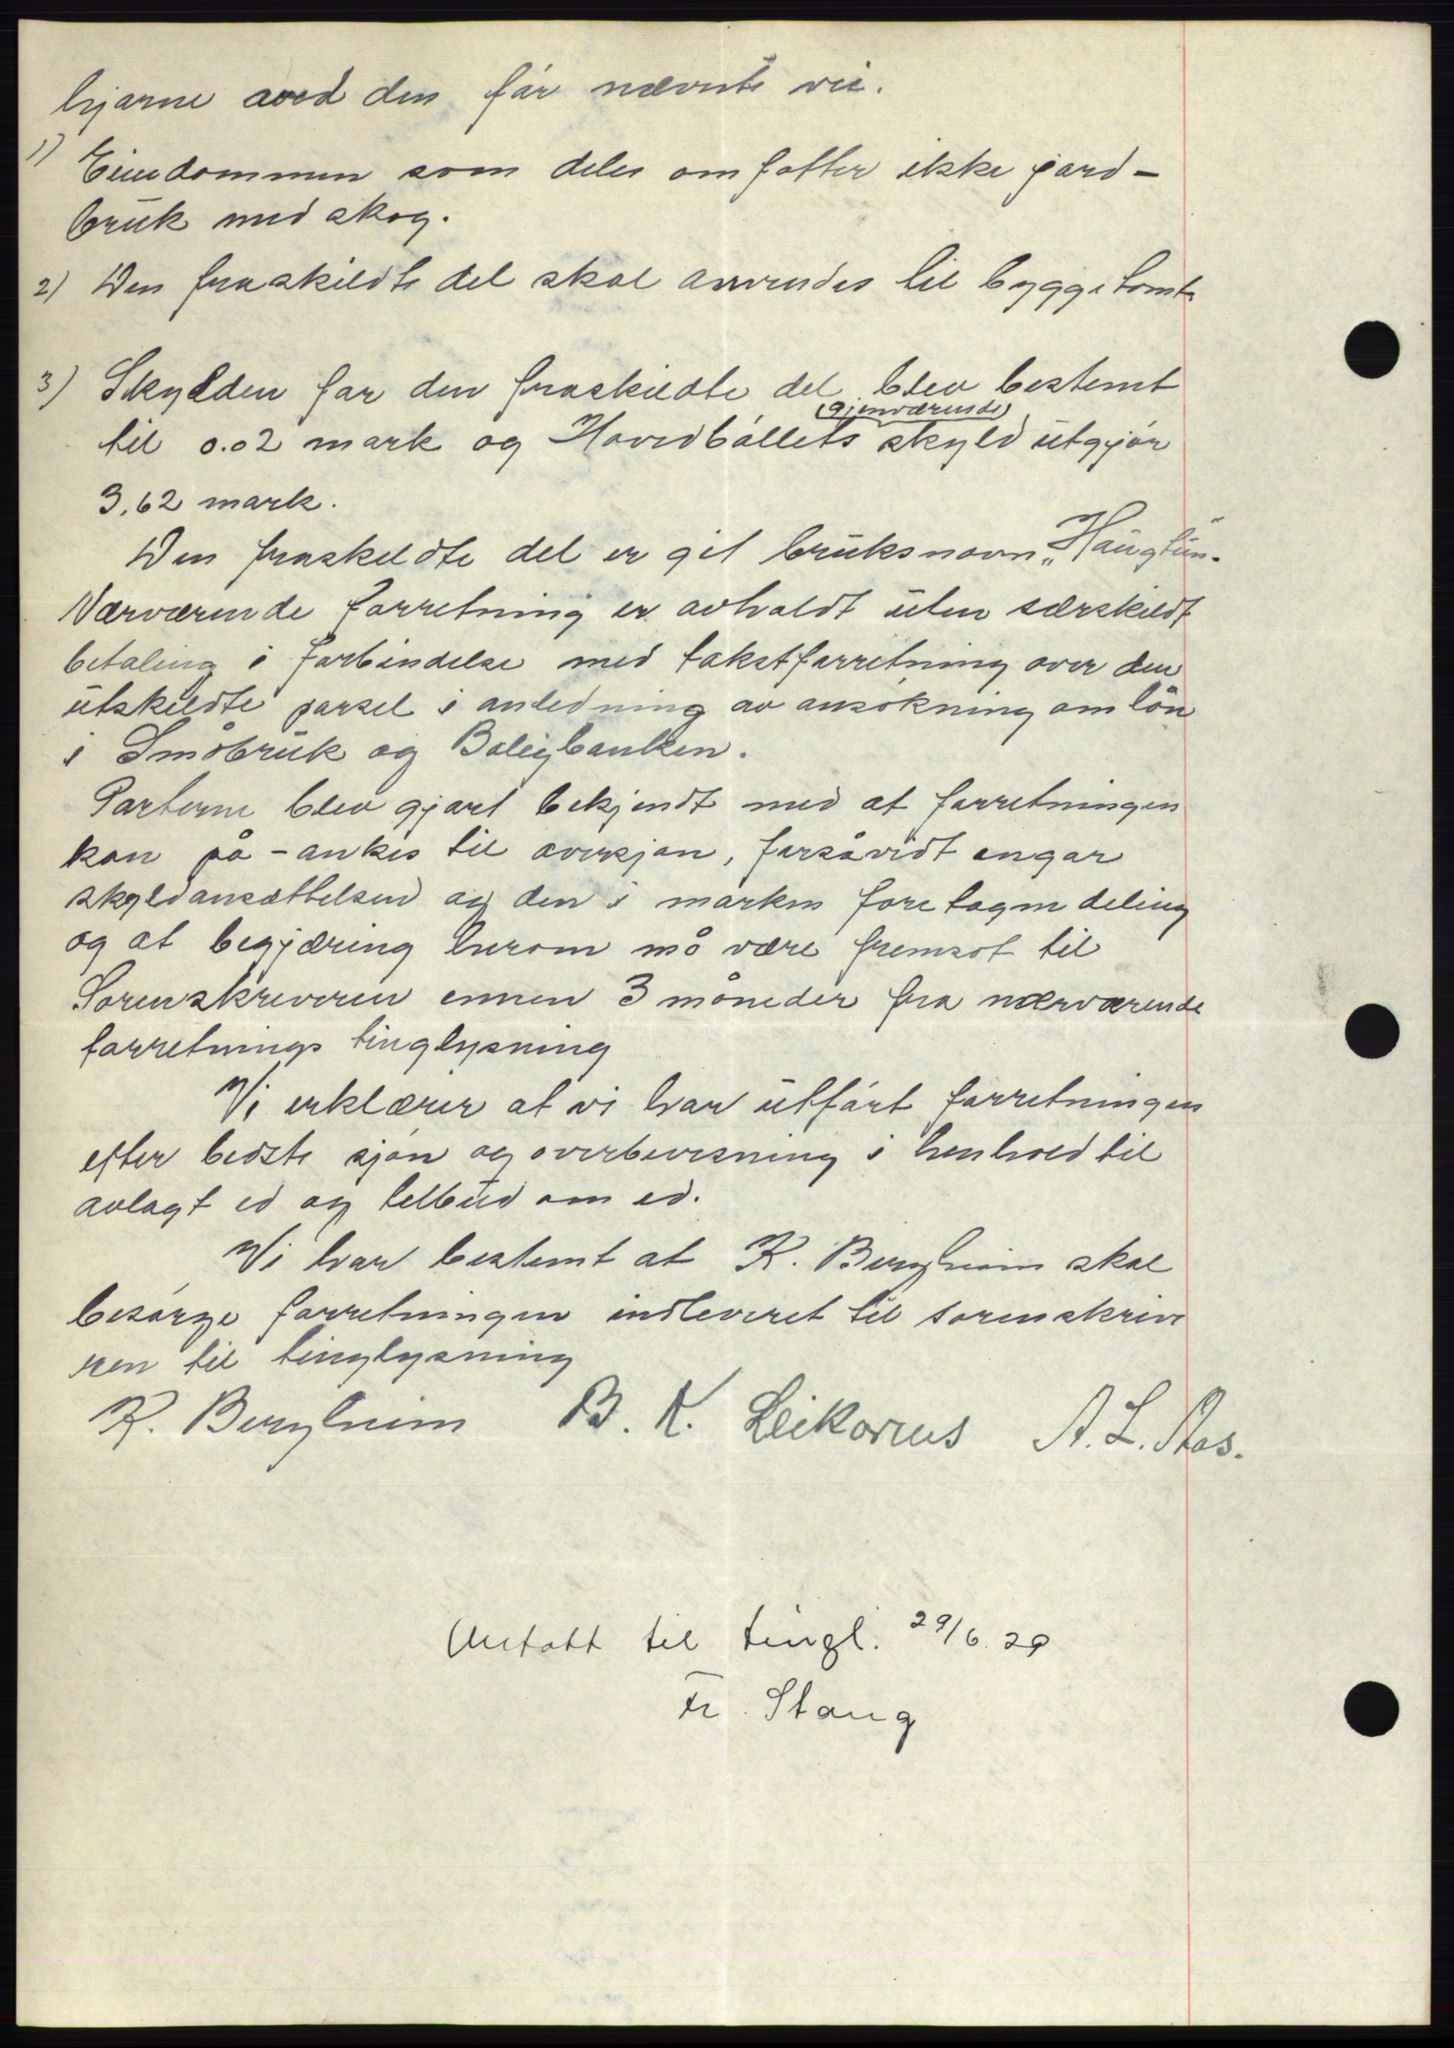 hjørne ved den før nævnte vei.
1) Eiendommen som deles omfatter ikke gard-
bruk med skog.
2) Den fraskildte del skal anvendes til byggetomt
3) Skylden for den fraskildte del blev bestemt
til 0.02 mark og Hovedbøllets (gjenværende) skyld utgjør
3,62 mark.
Den fraskildte del er git bruksnavn „Haugtun.
Nærværende forretning er avholdt uten særskildt
betaling i forbindelse med takstforretning over den
utskildte parsel i anledning av ansøkning om lån
i Småbruk og Boligbanken.
Parterne blev gjort bekjendt med at forretningen
kan på-ankes til overskjøn, forsåvidt angår
skyldansættelsen og den i marken foretagne deling
og at begjæring herom må være fremsat til
Sorenskriveren innen 3 måneder fra nærværende
forretnings tinglysning
Vi erklærer at vi har utført forretningen
efter bedste skjøn og overbevisning i henhold til
avlagt ed og tilbud om ed.
Vi har bestemt at K. Bergheim skal
besørge forretningen indleveret til sorenskrive
ren til tinglysning
K. Bergheim B. K. Leikarnes A. L. Aas.
Mottatt til tingl. 29/6. 29
Fr. Stang